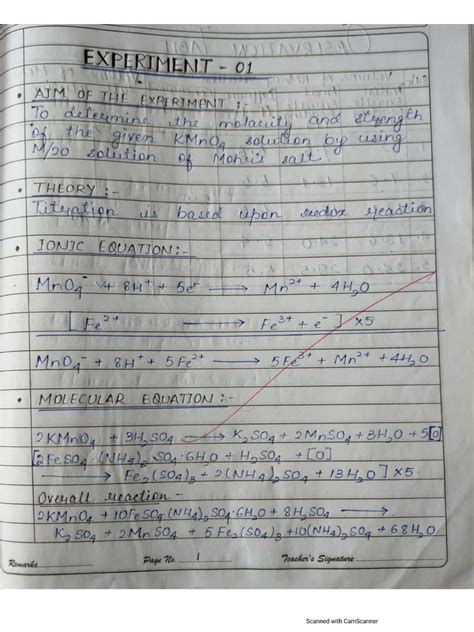 EXPERIMENT - 01
• AIM OF THE EXPERIMENT :-
To determine the molarity and strength
of the given KMnO₄ solution by using
M/20 solution of Mohr's salt.
• THEORY :-
Titration is based upon redox reaction
• IONIC EQUATION:-
MnO₄⁻ + 8H⁺ + 5e⁻ ⟶ Mn²⁺ + 4H₂O
[ Fe²⁺ ⟶ Fe³⁺ + e⁻ ] ×5
MnO₄⁻ + 8H⁺ + 5Fe²⁺ ⟶ 5Fe³⁺ + Mn²⁺ + 4H₂O
• MOLECULAR EQUATION :-
2KMnO₄ + 3H₂SO₄ ⟶ K₂SO₄ + 2MnSO₄ + 3H₂O + 5[O]
[2FeSO₄·(NH₄)₂SO₄·6H₂O + H₂SO₄ + [O]
⟶ Fe₂(SO₄)₃ + 2(NH₄)₂SO₄ + 13H₂O ] ×5.
Overall reaction -
2KMnO₄ + 10FeSO₄·(NH₄)₂SO₄·6H₂O + 8H₂SO₄ ⟶
K₂SO₄ + 2MnSO₄ + 5Fe₂(SO₄)₃ + 10(NH₄)₂SO₄ + 68H₂O.
Remarks Page No. 1 Teacher's Signature
Scanned with CamScanner